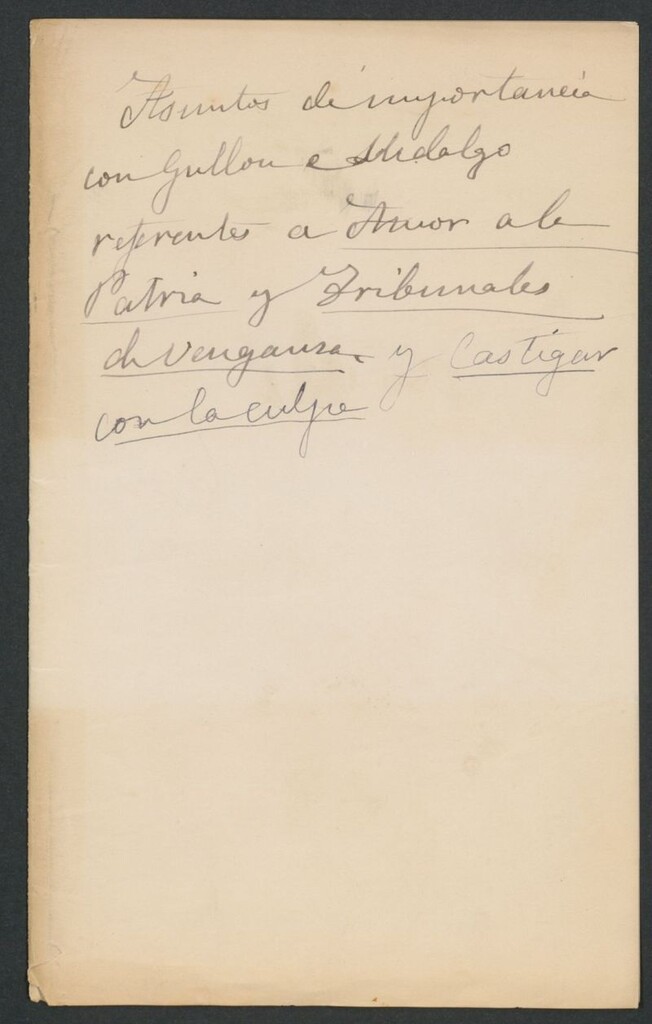 Asuntos de importancia
con Gullon e Hidalgo
referentes a Amor a la
Patria y Tribunales
de Venganza y Castigar
con la culpa